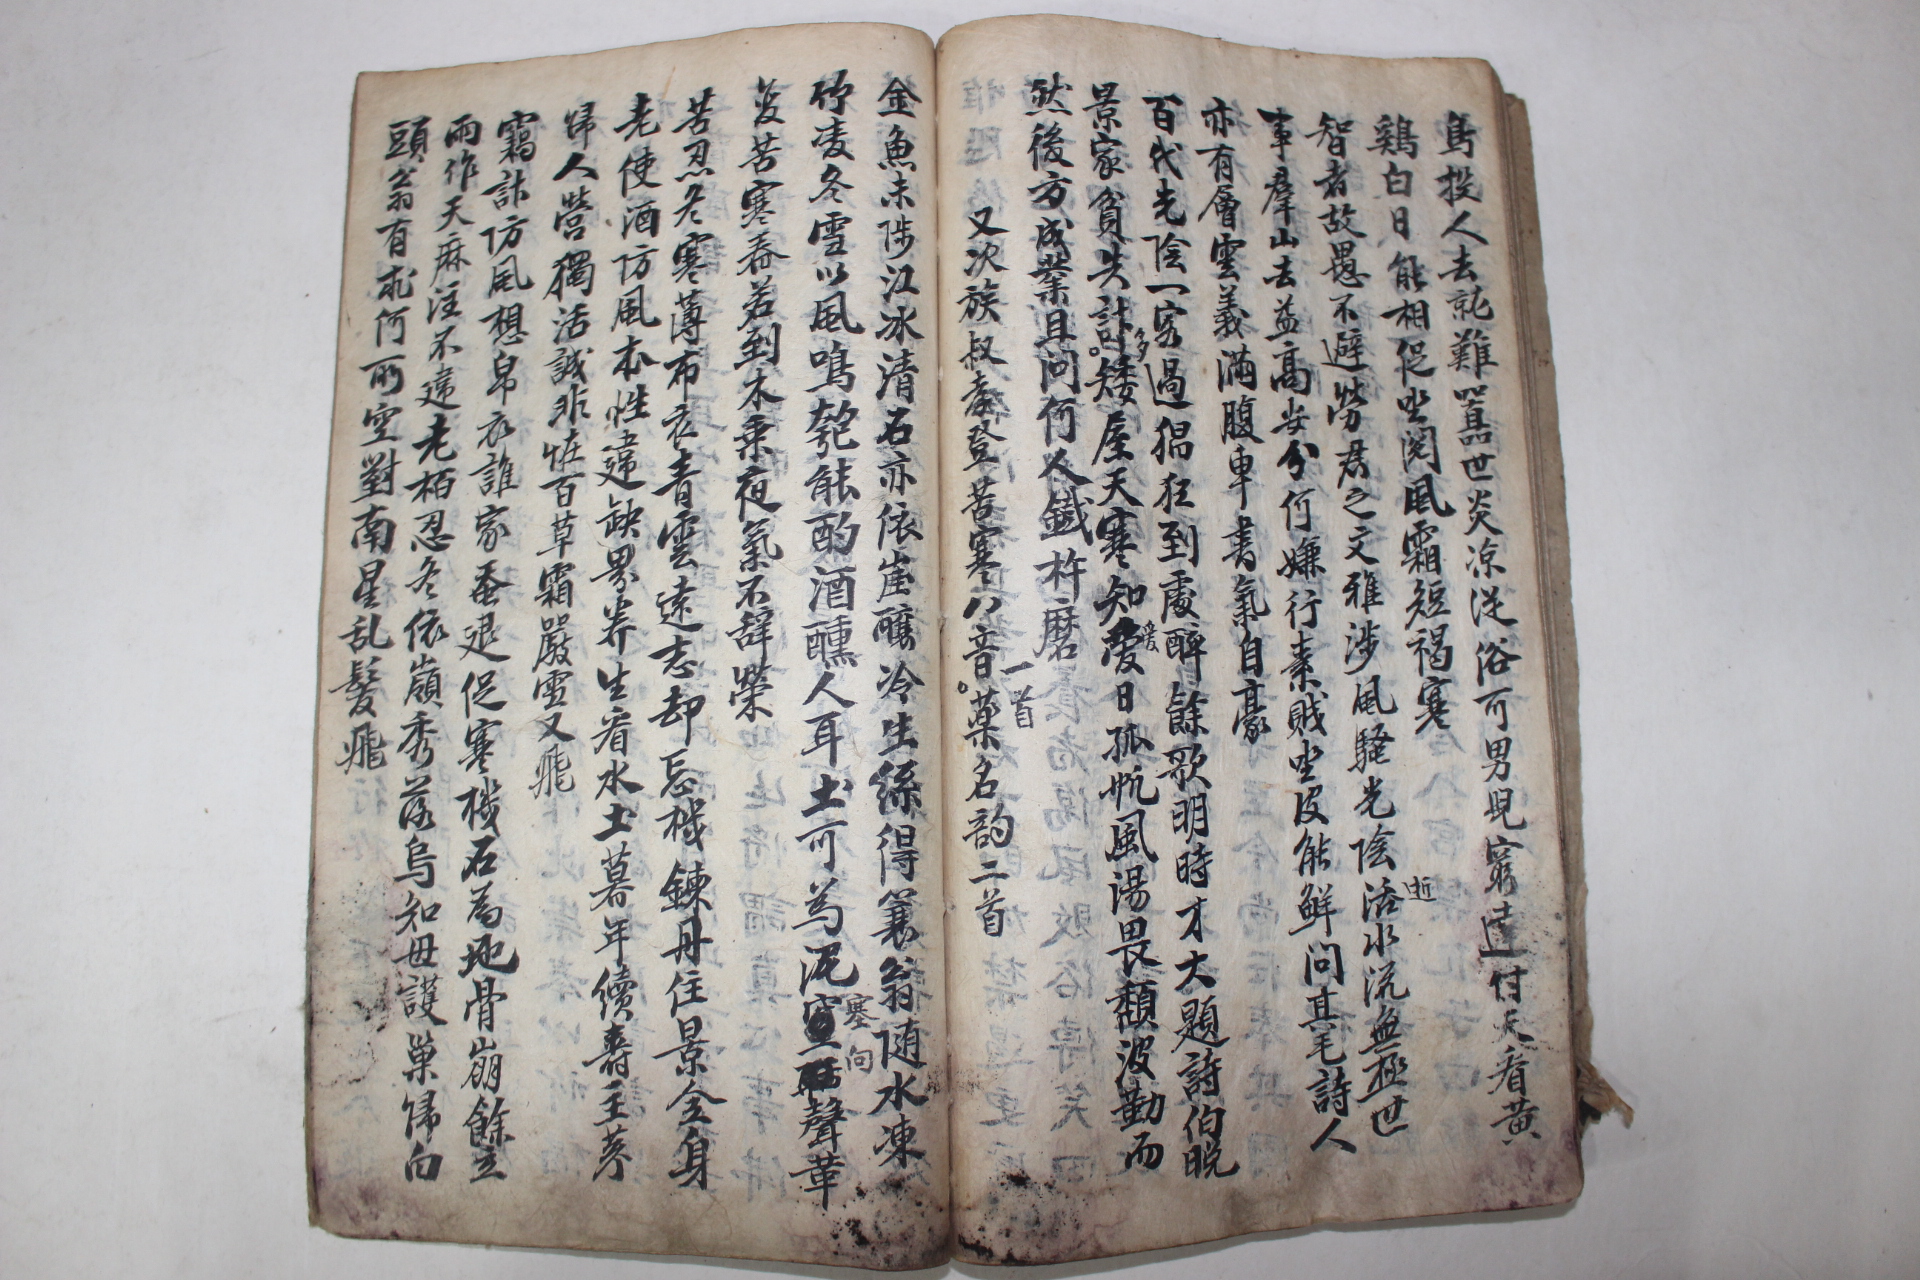 鳥投人去就難囂世炎凉從俗可男兒窮達付天看黃
鷄白日能相促坐閱風霜短褐寒
智者故愚不避勞君之文雅涉風騷光陰活水流無極世
逝
事羣山去益高安分何嫌行素賤坐皮能鮮問其毛詩人
亦有層雲義滿腹車書氣自豪
百代光陰一客過猖狂到處醉餘歌明時才大題詩伯晩
景家貧失計多矮屋天寒知愛日孤帆風湯畏頹波勤而
然後方成業且問何人鐵杵磨
又次族叔 登苦寒八音一首藥名韵二首
金魚未陟江冰清石亦依崖釀冷生絲得蓑翁随水凍
竹凌冬雪以風鳴匏能酌酒醺人耳土可為泥塞向聲革
 苦寒春若到木乘夜氣不辭榮
苦忍冬寒薄布衣青雲遠志却忘機鍊丹住景全身
老使酒防風本性違缺界养生看水土暮年續壽王芩
歸人營獨活誠非怪百草霜嚴雪又飛
竊計防風想帛衣誰家蚕退促寒機石為地骨崩餘立
雨作天麻注不違老栢忍冬依嶺秀落烏知母護巢歸白
頭翁有求何所空對南星乱髮飛